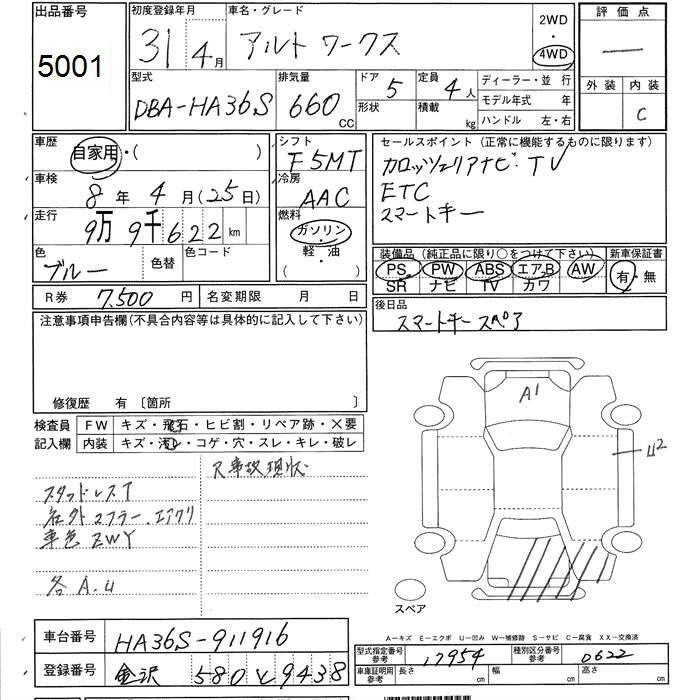 出品番号
5001
初度登録年月
31 4月
車名・グレード
アルト ワークス
2WD
4WD
評価点
外装 内装
C
型式
DBA-HA36S
排気量
660 CC
ドア 5
形状
定員 4人
積載 kg
ディーラー・並 行
モデル年式 年
ハンドル 左・右
車歴
自家用・( )
車検
8年 4月(25日)
走行
9万 9千 6 2 2 km
色
ブルー
色替
色コード
シフト
F5MT
冷房
AAC
燃料
ガソリン
軽・油
( )
セールスポイント(正常に機能するものに限ります)
カロッツェリアナビ・TV
ETC
スマートキー
装備品(純正品に限り○をつけて下さい)
PS PW ABS エアB AW
SR ナビ TV カワ
新車保証書
有・無
R券 7,500 円
名変期限 月 日
後日品
スマートキー スペア
注意事項申告欄(不具合内容等は具体的に記入して下さい)
修復歴 有〔箇所 〕
検査員
記入欄
FW キズ・飛石・ヒビ割・リペア跡・X要
内装 キズ・汚レ・コゲ・穴・スレ・キレ・破レ
又事故現状
スタッドレスT
社外マフラー.エアクリ
車色 ZWY
各A.U
A1
U2
スペア
A-キズ E-エクボ U-凹み W-補修跡 S-サビ C-腐食 XX-交換済
車台番号
HA36S-911916
登録番号
金沢 580 と 9438
型式指定番号
参考
17954
種別区分番号
参考
0622
車庫証明用
参考
長さ cm
幅 cm
高さ cm